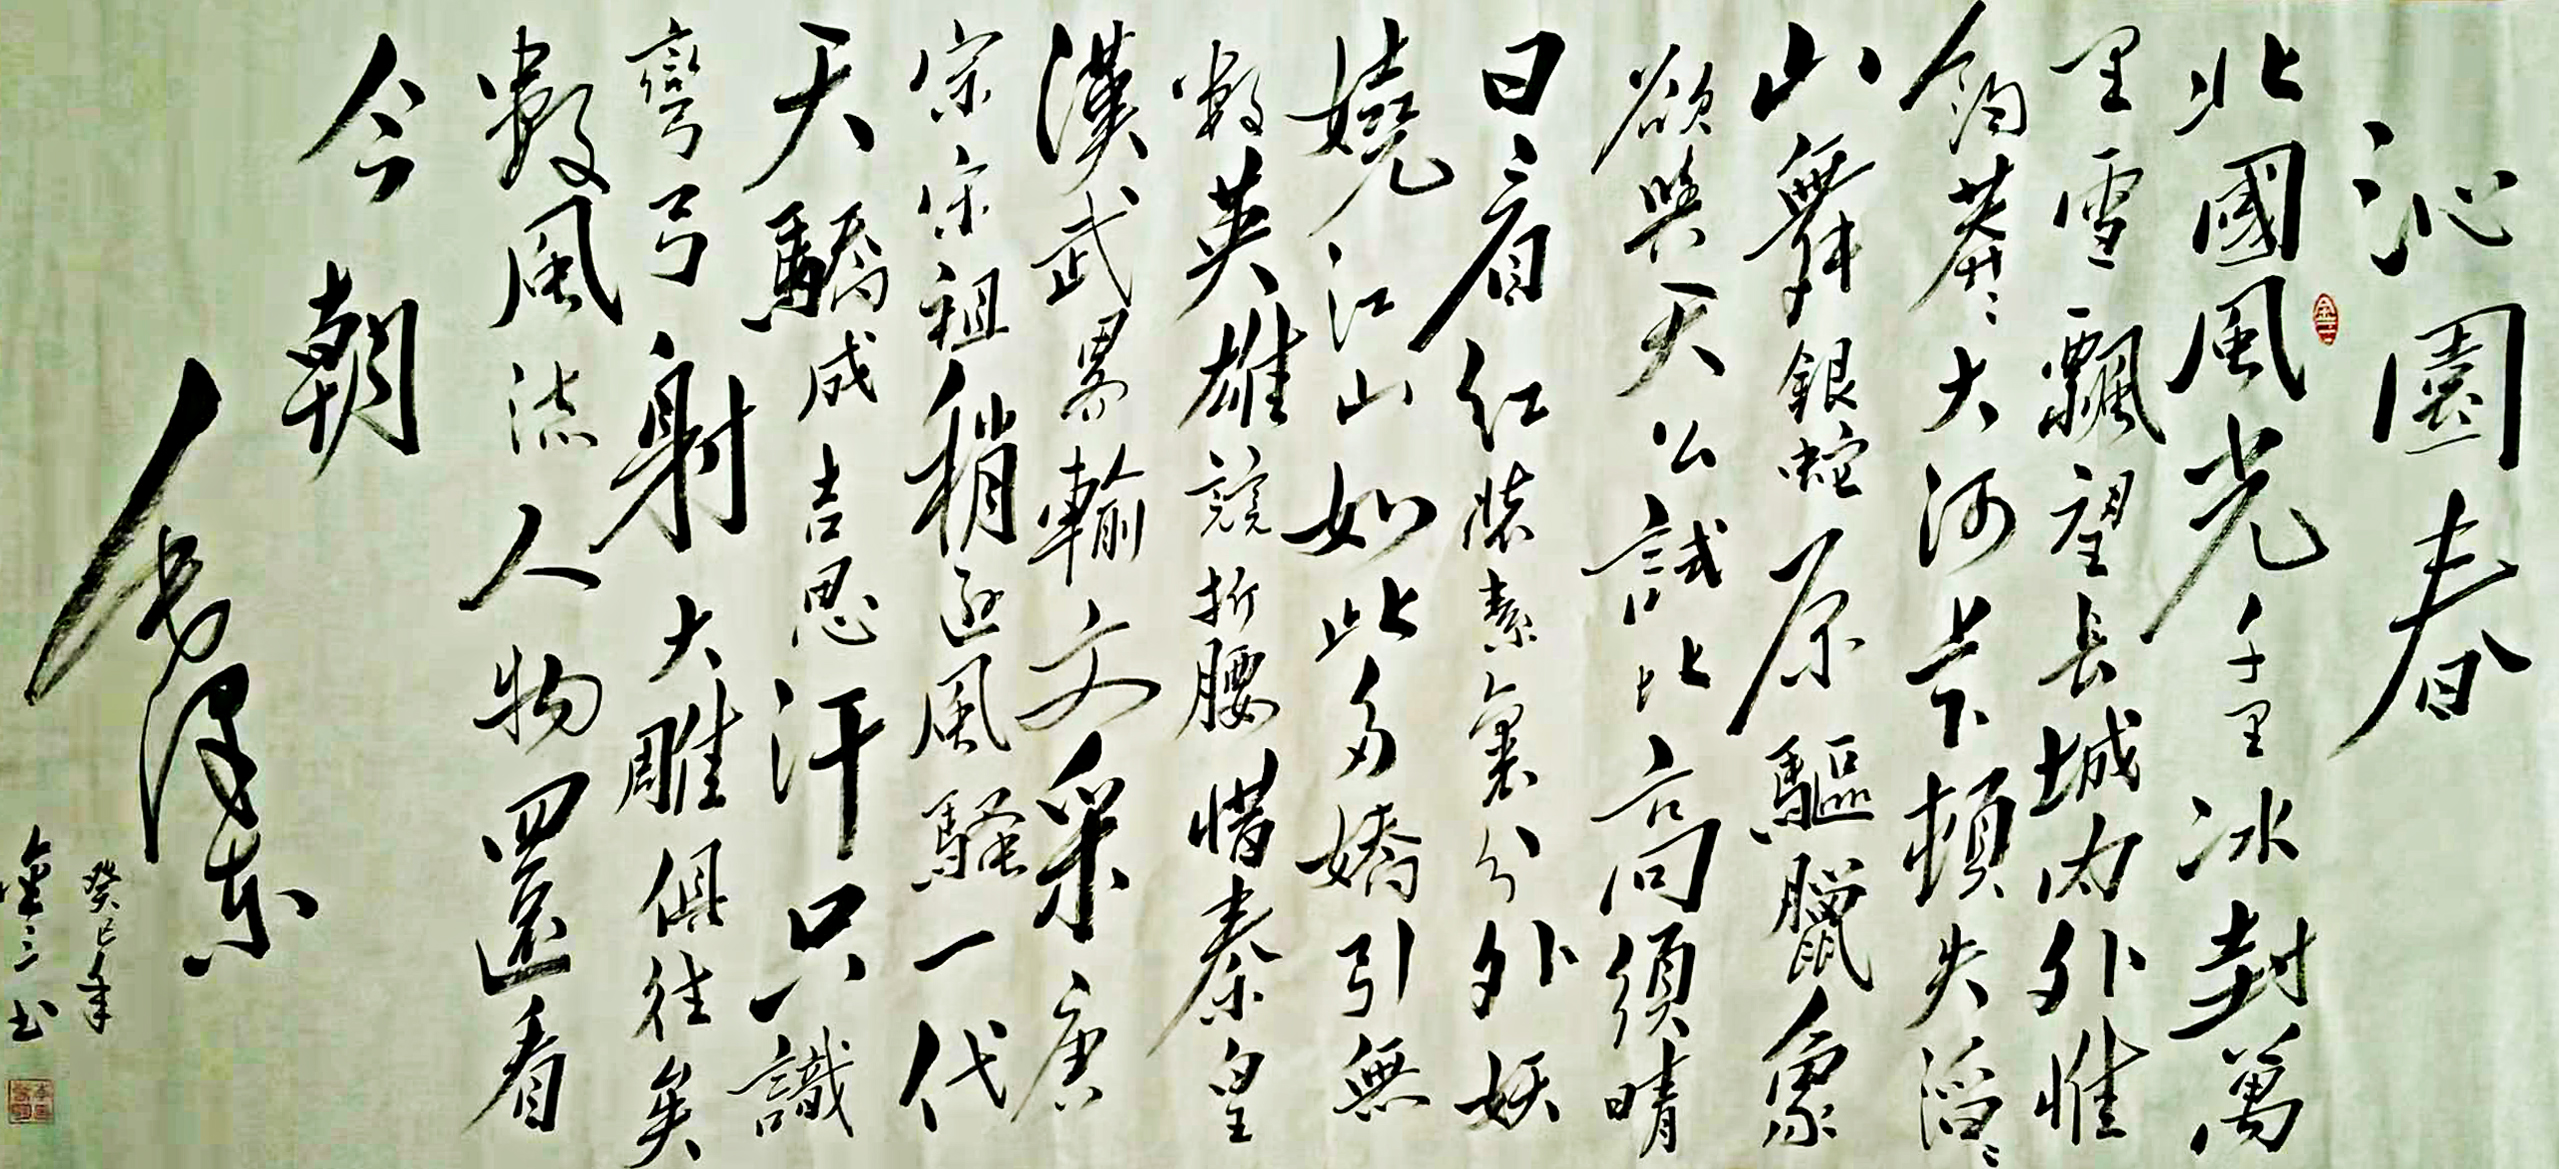 沁園春
北國風光千里冰封萬
里雪飄望長城內外惟
餘莽〻大河上下頓失滔〻
山舞銀蛇原驅臘象
欲與天公試比高須晴
日看紅裝素裹分外妖
嬈江山如此多嬌引無
數英雄競折腰惜秦皇
漢武畧輸文采唐
宗宋祖稍遜風騷一代
天驕成吉思汗只識
彎弓射大雕俱往矣
數風流人物還看
今朝
毛澤東
癸巳年
金三书
金三